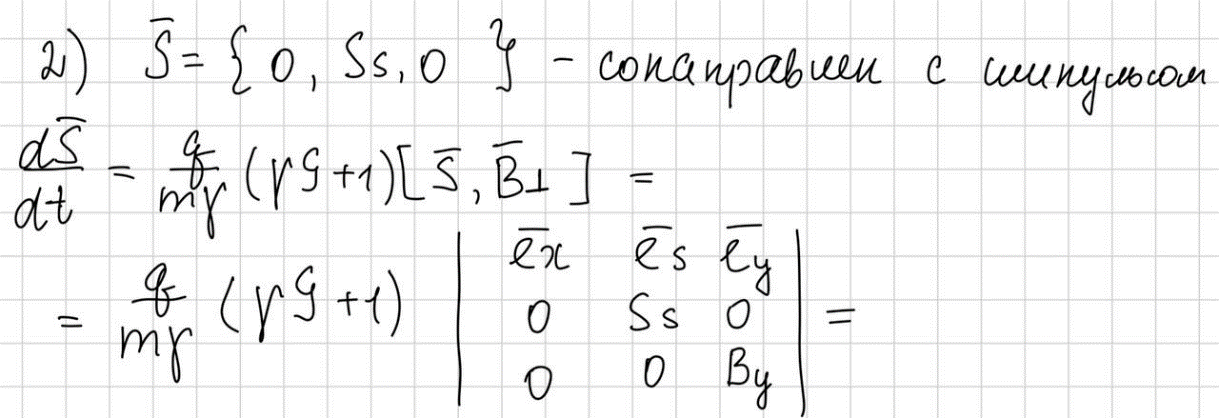 2) S̄ = { 0, Ss, 0 } – сонаправлен с импульсом
dS̄/dt = q/mγ (γG+1)[S̄, B̄⊥] =
= q/mγ (γG+1) | ēx ēs ēy |
| 0 Ss 0 | =
| 0 0 By |